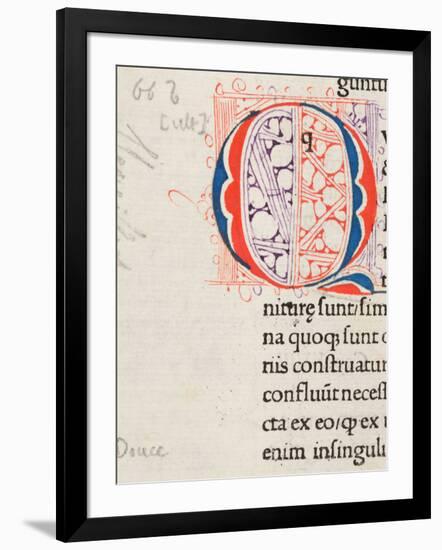 guntu
Q
q
niturę sunt/sim
na quoq; sunt
riis construatur
confluūt necess
cta ex eo/ꝙ ex
enim insingulı
Douce